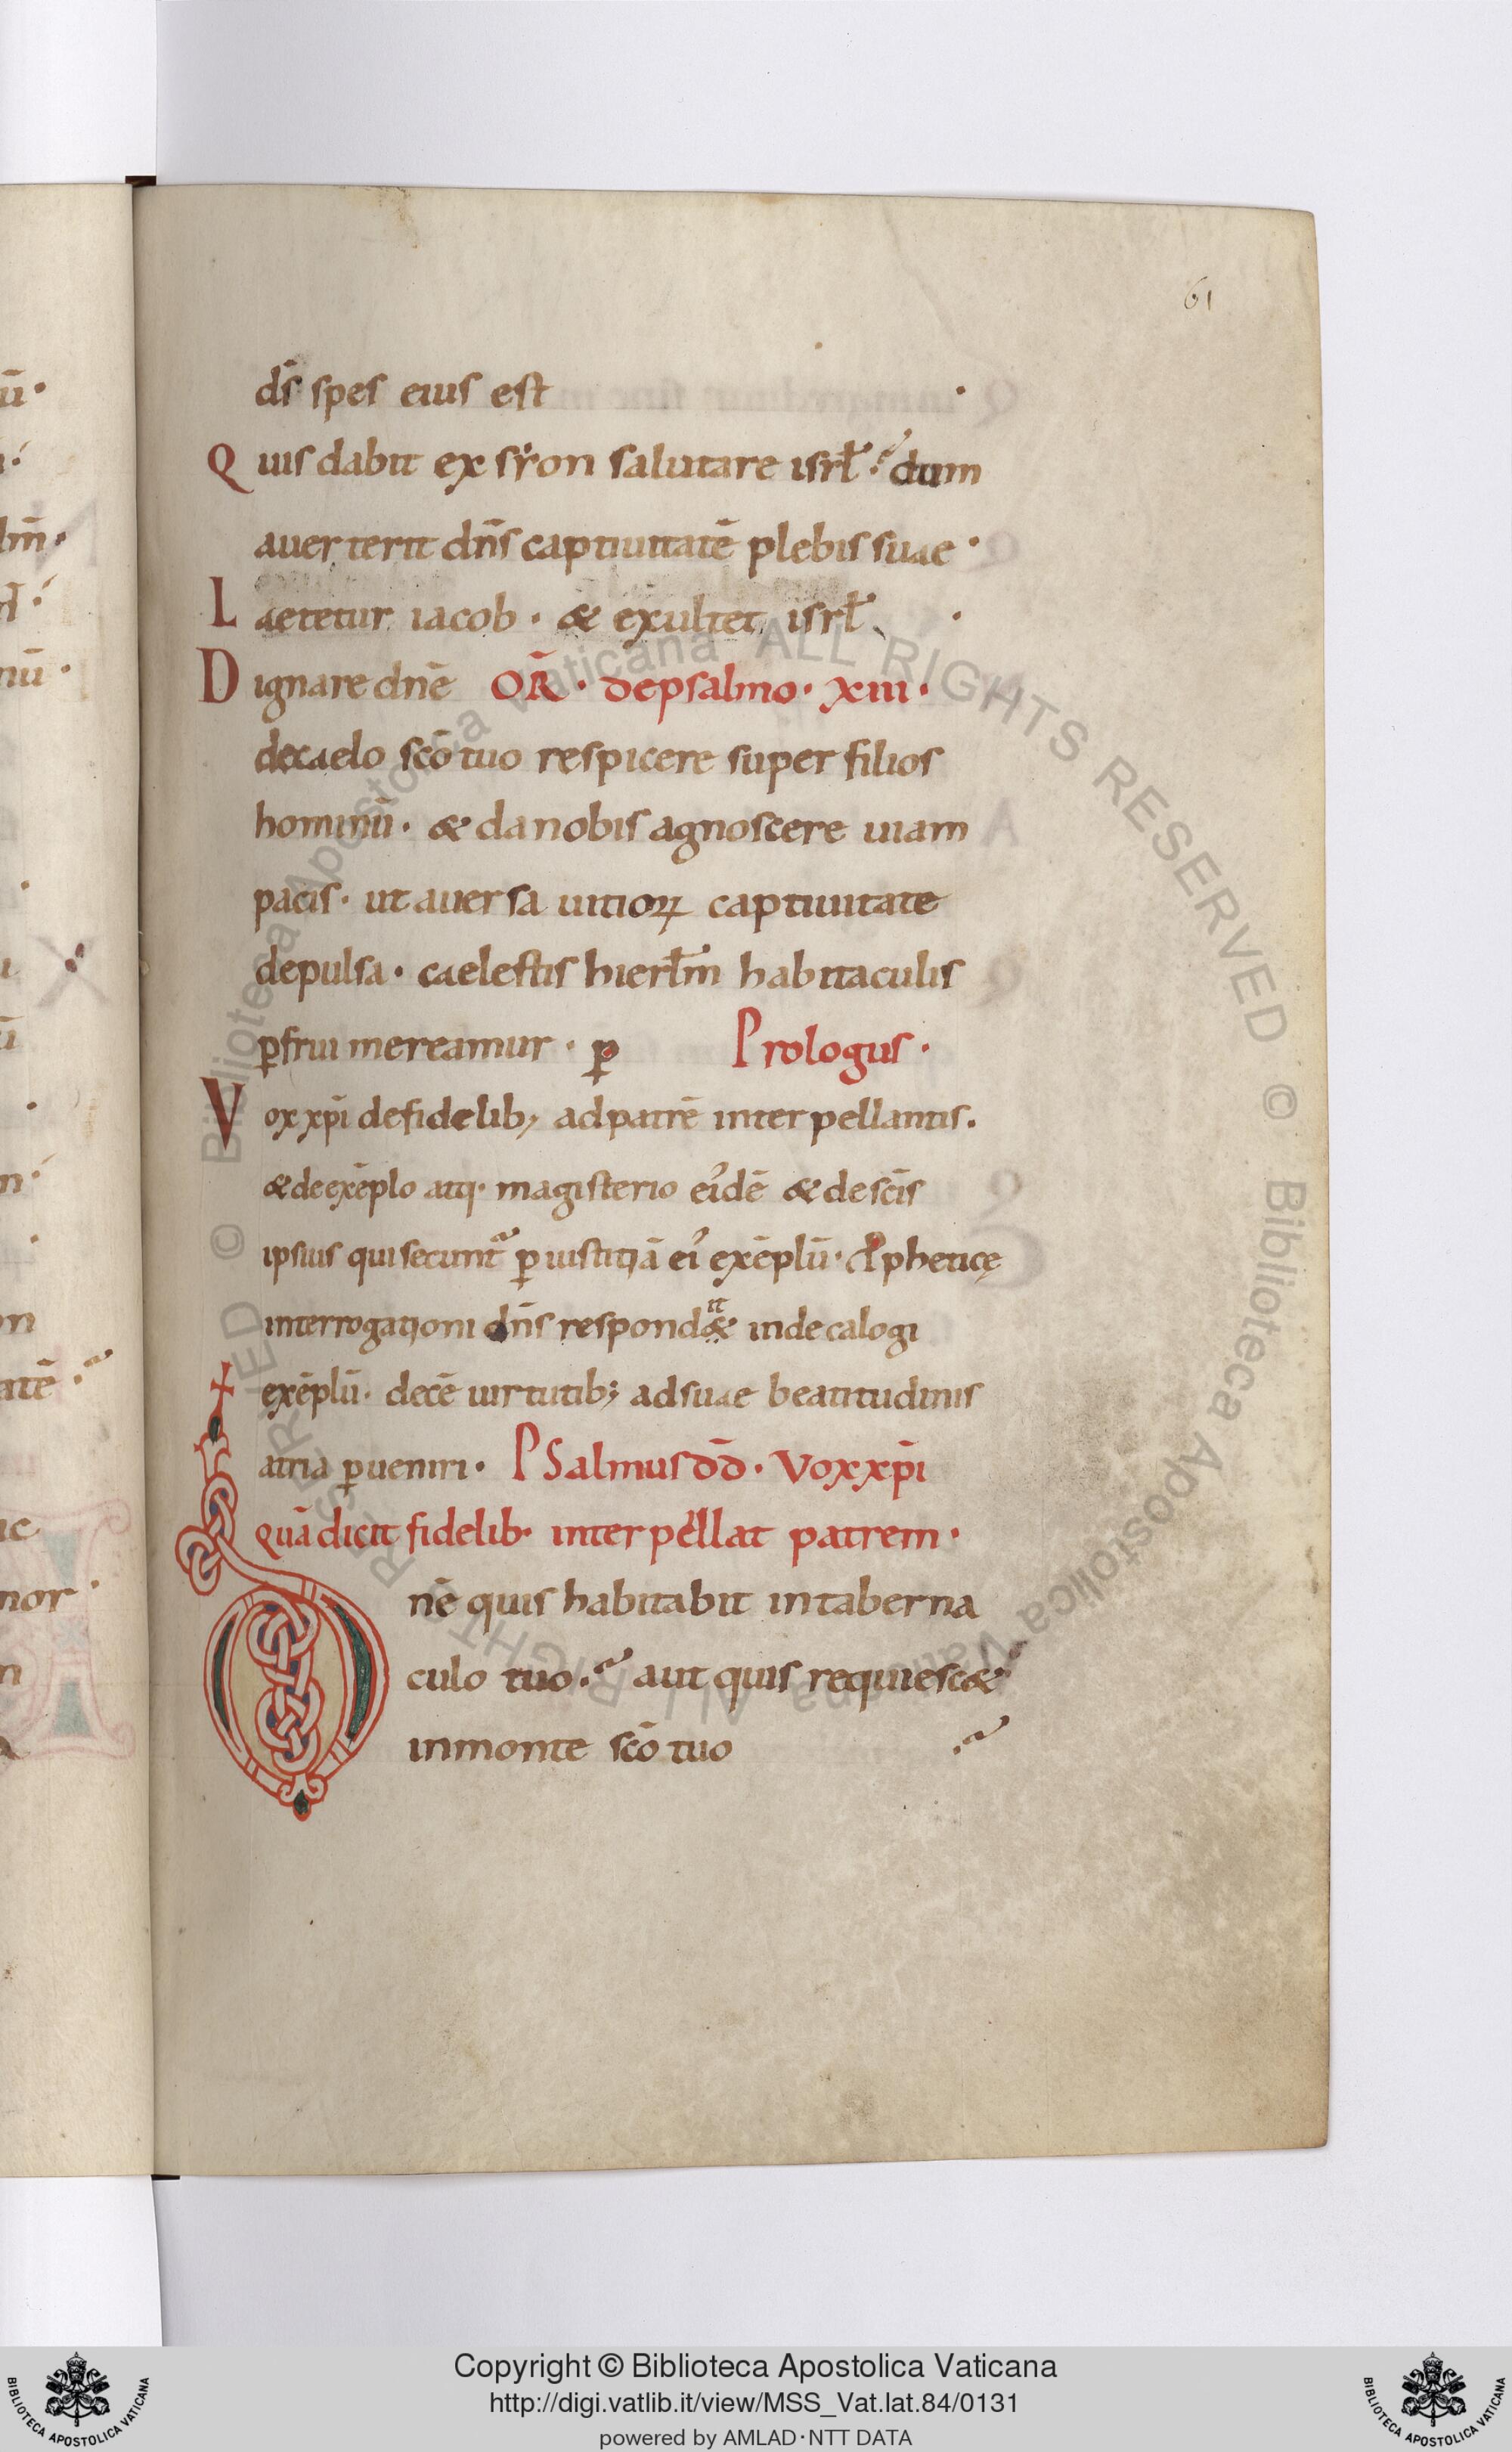 61
dš spes eius est ·
Quis dabit ex sẏon salutare isrł? dum
auerterit dñs captiuitatē plebis suae ·
Laetetur iacob · & exultet isrł ·
Dignare dnē OR̄ · de psalmo · xiii ·
de caelo scō tuo respicere super filios
hominū · & da nobis agnoscere uiam
pacis · ut auersa uitioꝝ captiuitate
depulsa · caelestis hierłm habitaculis
ꝑfrui mereamur · ꝑ Prologus ·
Vox xp̄i de fidelib; ad patrē interpellantis.
& de exēplo atq· magisterio ei᾿dē & de scīs
ipsius qui secunt᷑ ꝑ iustitiā ei᾿ exēplū · Propheticę
interrogationi dñs respond& it in decalogi
exēplū · decē uirtutib; ad suae beatitudinis
atria ꝑueniri · PSalmus dd̄ · Vox xp̄i
quā dicit fidelib· interpellat patrem ·
Dnē quis habitabit in taberna
culo tuo? aut quis requiesc&
in monte scō tuo ?
ū ·
lm̄ ·
nū ·
atē ?
nor ·
© Biblioteca Apostolica Vaticana ALL RIGHTS RESERVED © Biblioteca Apostolica Vaticana ALL RIGHTS RESERVED
BIBLIOTECA APOSTOLICA VATICANA
Copyright © Biblioteca Apostolica Vaticana
http://digi.vatlib.it/view/MSS_Vat.lat.84/0131
powered by AMLAD·NTT DATA
BIBLIOTECA APOSTOLICA VATICANA